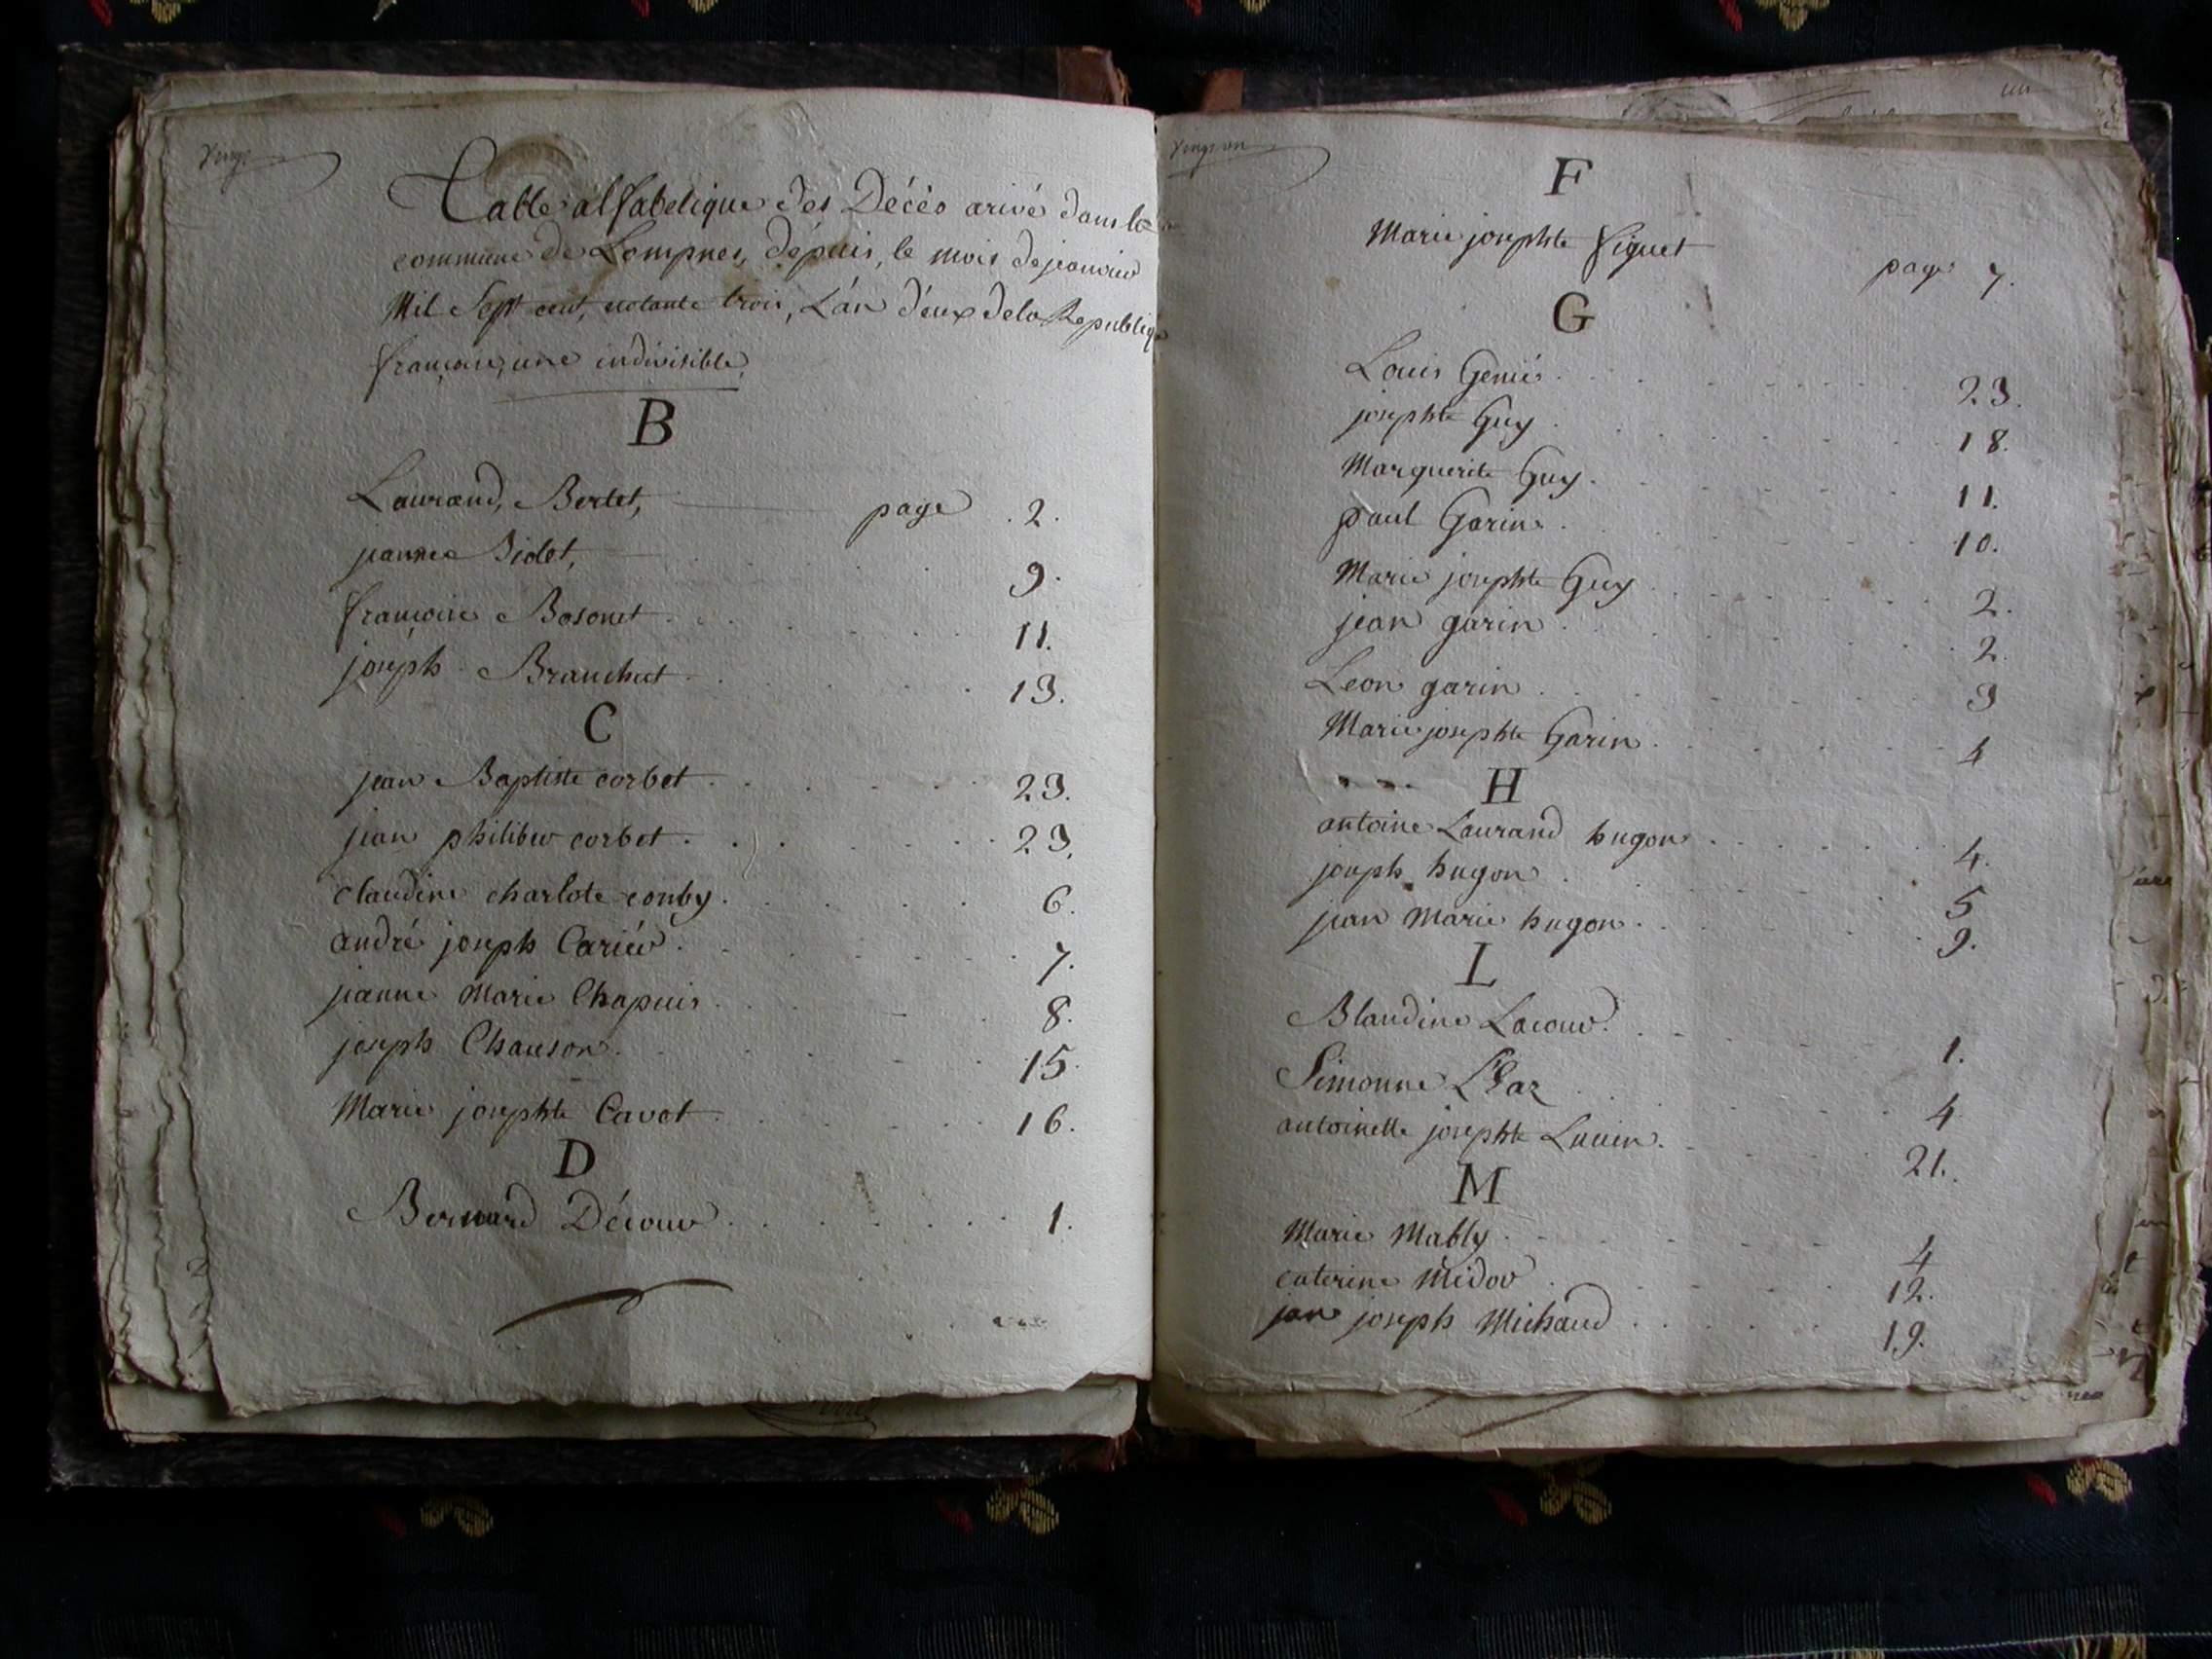 Table alfabetique des Décès arivé dans la
commune de Lompnes, dépuis, le mois de janvier
Mil Sept cent, notante trois, L'an deux de la Republiq
françoise, une indivisible,
B
Laurand, Bertet, page 2.
jeanne Bidet, 9.
françoise Bosonet 11.
joseph Branchet 13.
C
jean Baptiste corbet 23.
jean philiber corbet 23.
claudine charlote conby 6.
andré joseph Cariér 7.
jeanne Marie Chapuis 8.
joseph Chanson 15.
Marie josephte Cavet 16.
D
Bernard Décour 1.
Vingt un
F
Marie josephte figuet page 7.
G
Louis Genié 23.
josephte Guy 18.
Marguerite Guy 11.
paul Garin 10.
Marie josephte Guy 2.
jean garin 2.
Leon garin 3
Marie josephte Garin 4
H
antoine Laurand hugon 4.
joseph hugon 5
jean Marie hugon 9.
L
Blandine Lacour 1.
Simonne 4
antoinette josephte 21.
M
Marie Mably 4
caterine Midor 12.
jan joseph Michaud 19.